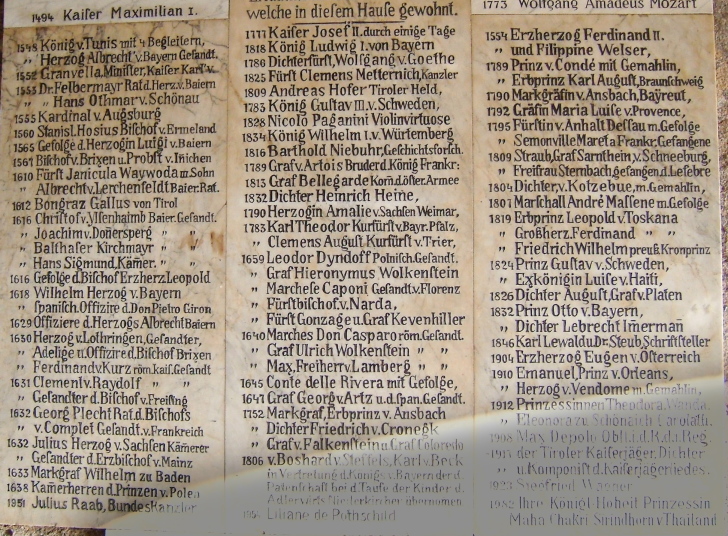 1494 Kaiser Maximilian I.
1548 König v. Tunis mit 4 Begleitern,
" Herzog Albrecht v. Bayern Gesandt.
1552 Granvella, Minister, Kaiser Karl v.
1553 Dr. Felbermayr Rat d. Herz. v. Baiern
" " Hans Othmar v. Schönau
1555 Kardinal v. Augsburg
1560 Stanisl. Hosius Bischof v. Ermeland
1565 Gefolge d. Herzogin Luigi v. Baiern
1561 Bischof v. Brixen u. Probst v. Inichen
1610 Fürst Janicula Waywoda m. Sohn
" Albrecht v. Lerchenfeldt Baier. Rat.
1612 Bongraz Gallus von Tirol
1616 Christof v. Ylsenhaimb Baier. Gesandt.
" Joachim v. Donersperg " "
" Balthaser Kirchmayr " "
" Hans Sigmund, Kämer. " "
1616 Gefolge d. Bischof Erzherz. Leopold
1618 Wilhelm Herzog v. Bayern
" spanisch. Offizire d. Don Pietro Giron
1629 Offiziere d. Herzogs Albrecht Baiern
1630 Herzog v. Lothringen, Gesandter,
" Adelige u. Offizire d. Bischof Brixen
" Ferdinand v. Kurz röm. kais. Gesandt
1631 Clemen v. Raydolf " "
" Gesandter d. Bischof v. Freising
1632 Georg Plecht Rat d. Bischofs
" v. Complet Gesandt. v. Frankreich
1632 Julius Herzog v. Sachsen Kämerer
" Gesandter d. Erzbischof v. Mainz
1633 Markgraf Wilhelm zu Baden
1638 Kamerherren d. Prinzen v. Polen
1951 Julius Raab, Bundeskanzler
welche in diesem Hause gewohnt.
1777 Kaiser Josef II. durch einige Tage
1818 König Ludwig I. von Bayern
1786 Dichterfürst, Wolfgang v. Goethe
1825 Fürst Clemens Metternich, Kanzler
1809 Andreas Hofer Tiroler Held,
1783 König Gustav III. v. Schweden,
1828 Nicolo Paganini Violinvirtuose
1834 König Wilhelm I. v. Würtemberg
1816 Barthold Niebuhr, Geschichtsforsch.
1789 Graf v. Artois Bruder d. König Frankr:
1813 Graf Bellegarde Kom. d. öster. Armee
1832 Dichter Heinrich Heine,
1790 Herzogin Amalie v. Sachsen Weimar,
1783 Karl Theodor Kurfürst v. Bayr. Pfalz,
" Clemens August Kurfürst v. Trier,
1659 Leodor Dyndoff Polnisch. Gesandt.
" Graf Hieronymus Wolkenstein
" Marchese Caponi Gesandt. v. Florenz
" Fürstbischof v. Narda,
" Fürst Gonzage u. Graf Kevenhiller
1640 Marches Don Casparo röm. Gesandt.
" Graf Ulrich Wolkenstein " "
" Max, Freiherr v. Lamberg " "
1645 Conte delle Rivera mit Gefolge,
1647 Graf Georg v. Artz u. d. span. Gesandt.
1752 Markgraf, Erbprinz v. Ansbach
" Dichter Friedrich v. Cronegk
" Graf v. Falkenstein u. Graf Coloredo
1806 v. Boshard v. Steffels, Karl v. Beck
in Vertretung d. Königs v. Bayern der d.
Patenschaft bei d. Taufe der Kinder d.
Adlerwirts Niederkircher übernomen
Liliane de Rothschild
1773 Wolfgang Amadeus Mozart
1554 Erzherzog Ferdinand II.
" und Filippine Welser,
1789 Prinz v. Condé mit Gemahlin,
" Erbprinz Karl August, Braunschweig
1790 Markgräfin v. Ansbach, Bayreut,
1792 Gräfin Maria Luise v. Provence,
1795 Fürstin v. Anhalt Dessau m. Gefolge
" Semonville Maret a Frankr. Gefangene
1809 Straub, Graf Sarnthein v. Schneeburg,
" Freifrau Sternbach, gefangen. d. Lefebre
1804 Dichter, v. Kotzebue, m. Gemahlin,
1801 Marschall André Massene m. Gefolge
1819 Erbprinz Leopold v. Toskana
" Großherz. Ferdinand " "
" Friedrich Wilhelm preuß. Kronprinz
1824 Prinz Gustav v. Schweden,
" Exkönigin Luise v. Haiti,
1826 Dichter August, Graf v. Platen
1832 Prinz Otto v. Bayern,
" Dichter Lebrecht Imerman
1846 Karl Lewald u. Dr. Steub, Schriftsteller
1904 Erzherzog Eugen v. Österreich
1910 Emanuel, Prinz v. Orleans,
" Herzog v. Vendome m. Gemahlin,
1912 Prinzessinnen Theodora, Wanda,
" Eleonora zu Schönaich Carolath.
1908 Max Depolo Obli. i. d. R. d. Reg.
der Tiroler Kaiserjäger, Dichter
" u. Komponist d. Kaiserjägerliedes.
1923 Siegfried Wagner
1982 Ihre Königl. Hoheit Prinzessin
Maha Chakri Sirindhorn v. Thailand